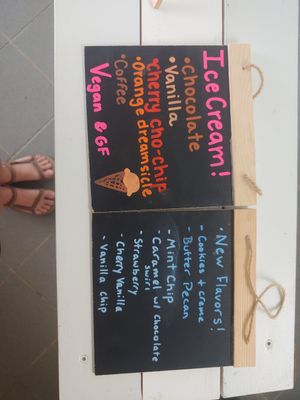 Ice Cream!
• Chocolate
• Vanilla
• Cherry cho-chip
• Orange dreamsicle
• Coffee
Vegan & GF
• New Flavors!
- Cookies + creme
- Butter Pecan
- Mint Chip
- Caramel w/ chocolate
swirl
- Strawberry
- Cherry Vanilla
- Vanilla chip